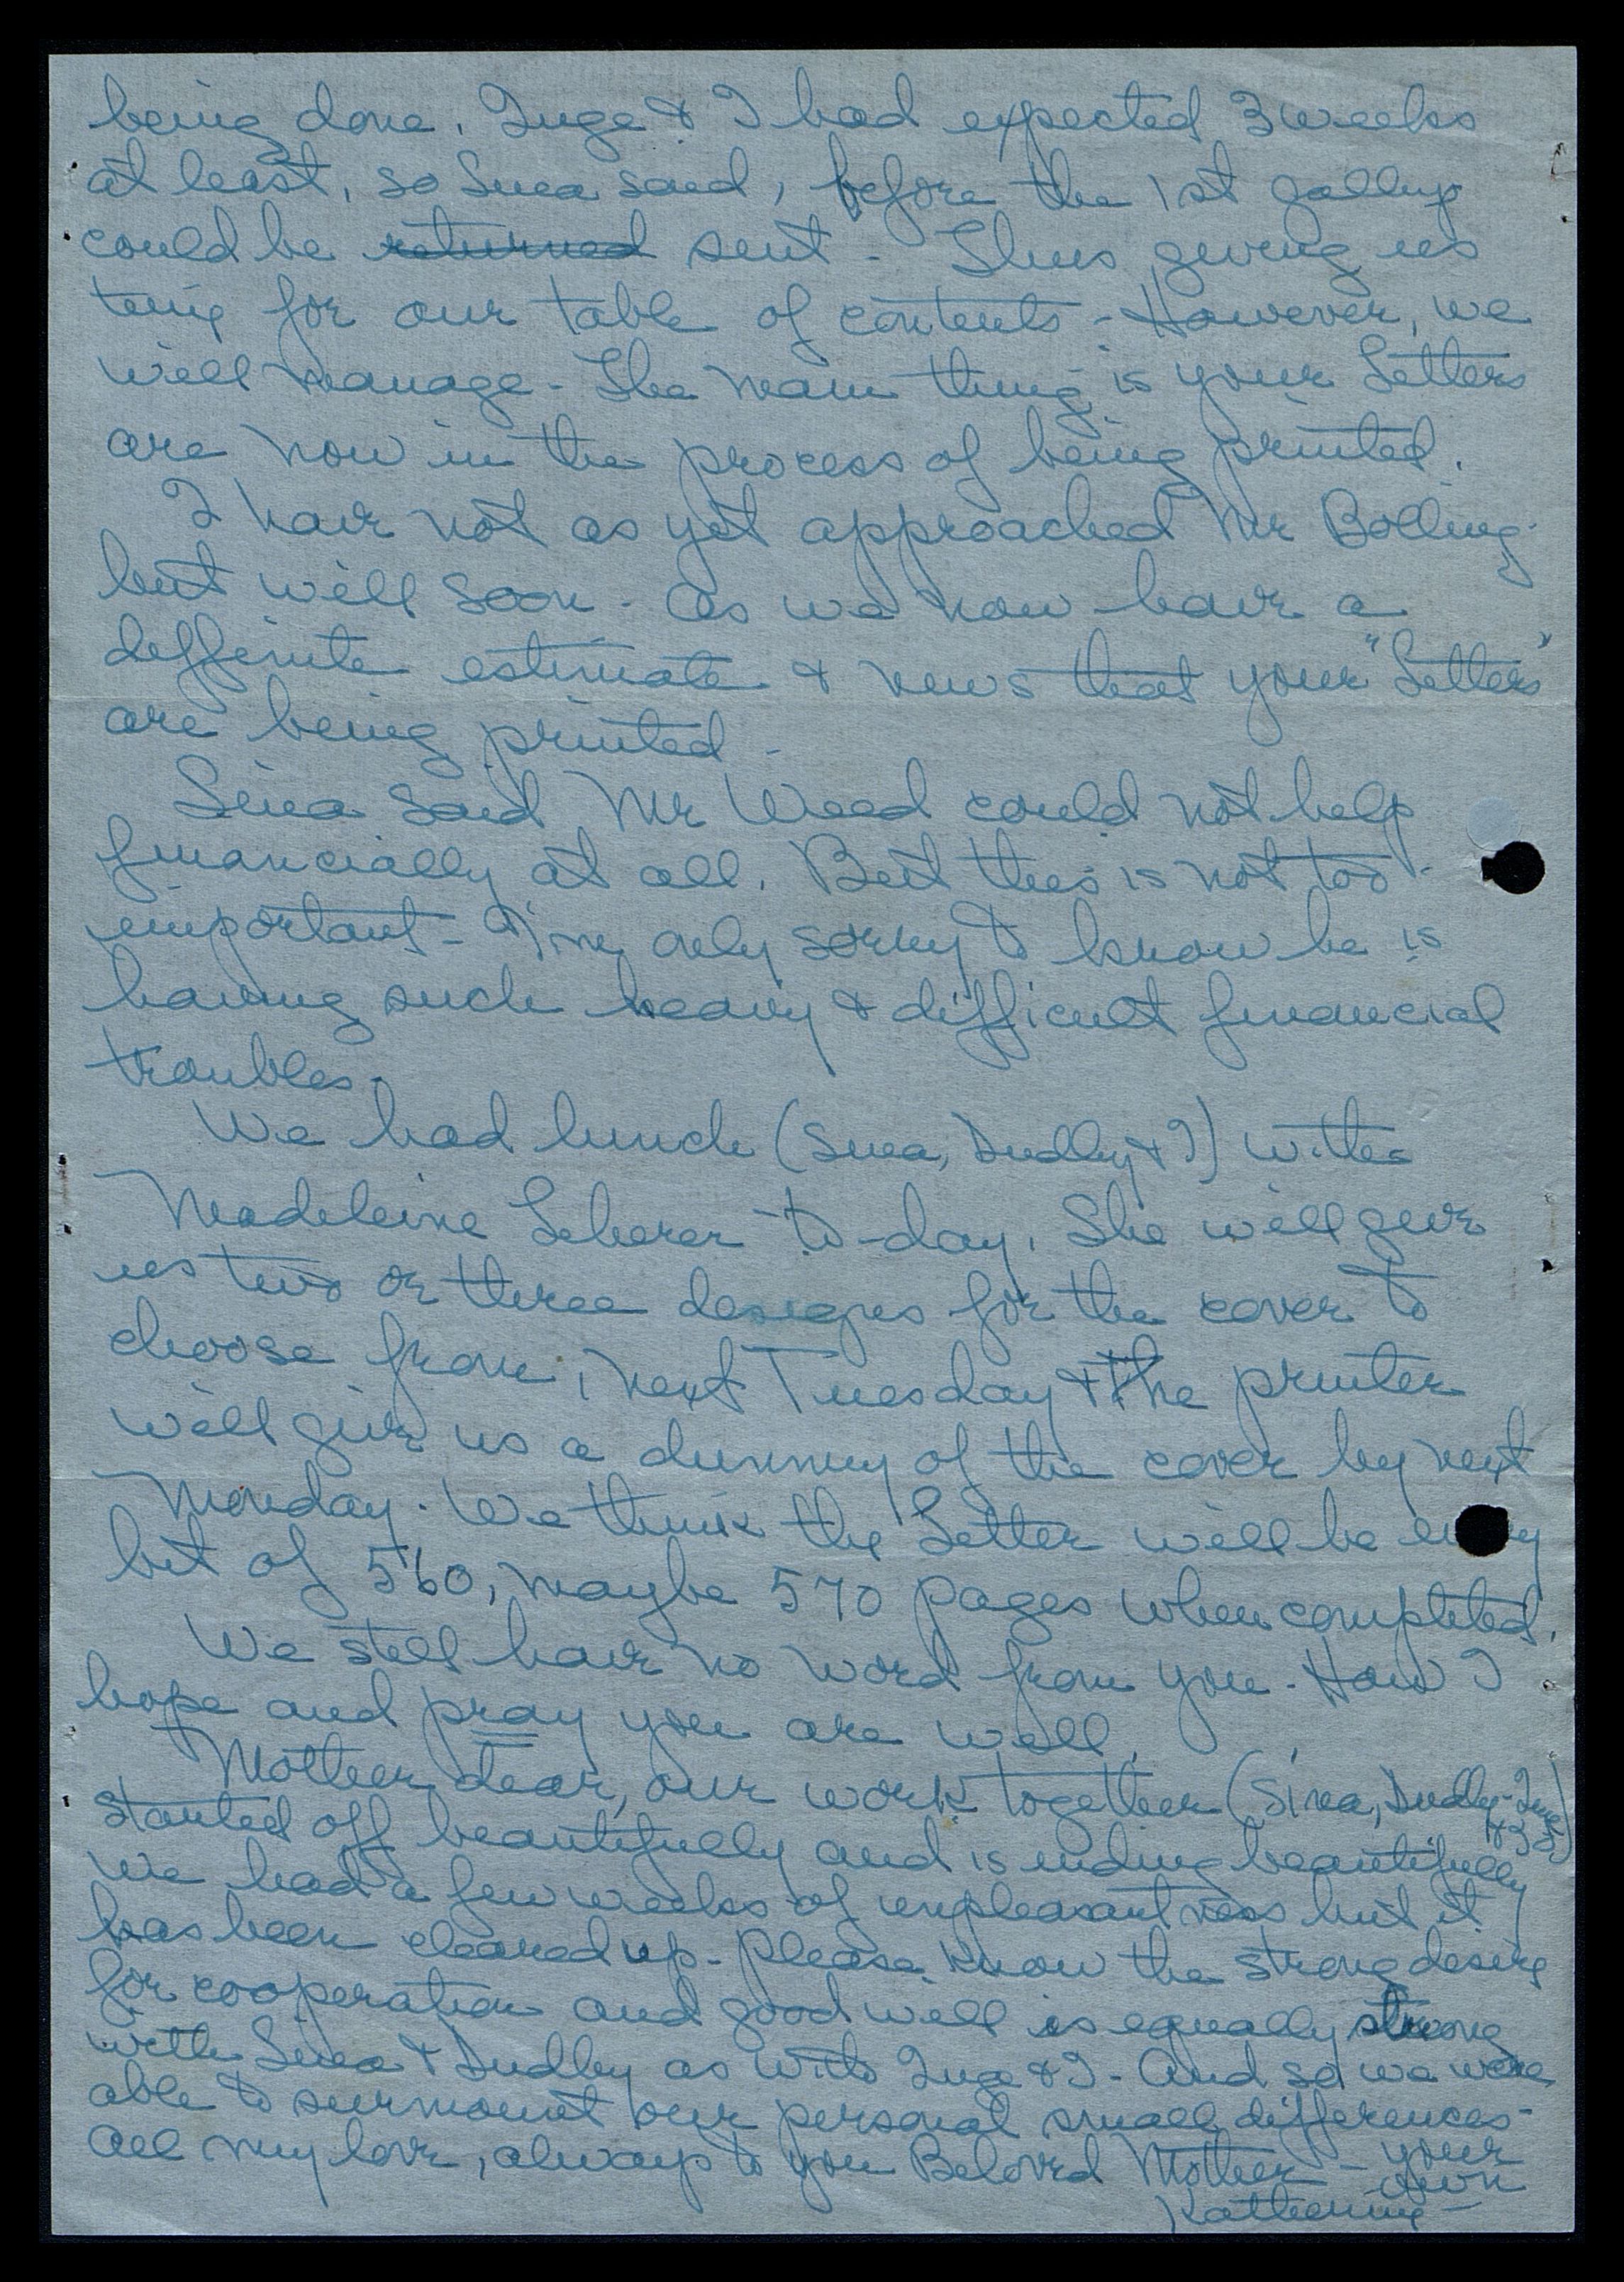 being done. Inge & I had expected 3 weeks
at least, so Sina said, before the 1st galleys
could be returned sent - Thus giving us
time for our table of contents - However, we
will manage - The main thing is your Letters
are now in the process of being printed.
I have not as yet approached Mr Bolling
but will soon - as we now have a
deffinite estimate & news that your "Letters"
are being printed -
Sina said Mr Weed could not help
financially at all. But this is not too
important - I'm only sorry to know he is
having such heavy & difficult financial
troubles.
We had lunch (Sina, Dudley & I) with
Madeleine Leherer to-day. She will give
us two or three designs for the cover to
choose from, next Tuesday & the printer
will give us a dummy of the cover by next
Monday. We think the Letter will be every
bit of 560, maybe 570 pages when completed.
We still have no word from you - How I
hope and pray you are well.
Mother dear, our work together (Sina, Dudley - Inge & I)
started off beautifully and is ending beautifully
We had a few weeks of unpleasantness but it
has been cleared up - Please know the strong desire
for cooperation and good will is equally strong
with Sina & Dudley as with Inge & I - And so we were
able to surmount our personal small differences -
All my love, always to you Beloved Mother - your
own
Katherine -